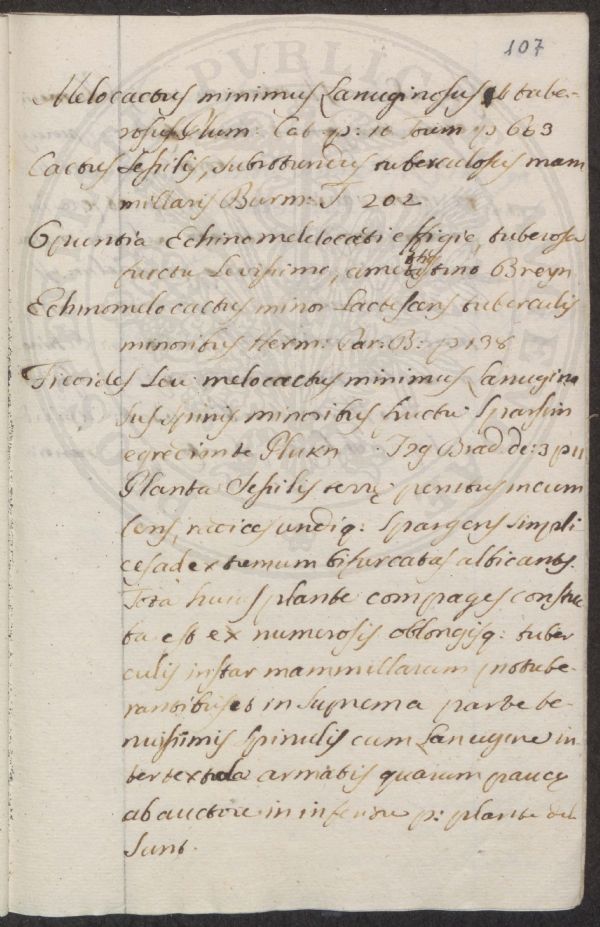 107
Melocactus minimus Lanuginosus et tube-
rosus Plum: Cat p: 10 Tourn p 653
Cactus Sessilis, subrotundus tuberculosus mam
millaris Burm: T 202
Opuntia Echinomelocacti effigie, tuberosa
fructu Levissimo, amethistino Breyn
Echinomelocactus minor Lactescens tuberculis
minoribus Herm: Par: B: p 138
Ficoides seu melocactus minimus Lanugino
sus spinis minoribus fructu sparsim
egrediente Plukn Fig Brad de: 3 p 11
Planta Sessilis terrę penitus incum
bens, radices undiq: Spargens simpli
ces ad extremum bifurcatas albicants.
Tota huius plante compages constru
ta est ex numerosis oblongisq: tuber
culis instar mammillarum protube-
rantibus et in Suprema parte te-
nuissimis Spinulis cum Lanugine in
tertexta armatis quarum paucę
ab auctore in inferiore p: plante
Sunt.